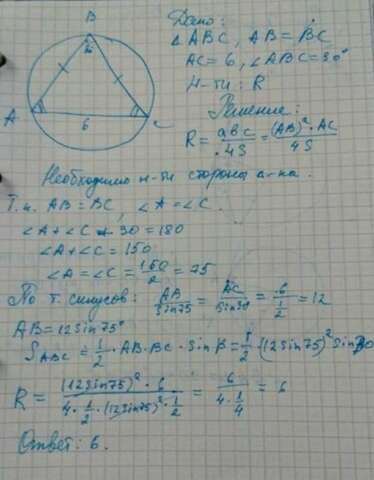 B
30
A
C
6
Дано:
△ABC, AB = BC
AC = 6, ∠ABC = 30°
Н-ти: R
Решение:
R = abc/4S = (AB)²·AC/4S
Необходимо н-ти стороны
Т.к. AB = BC, ∠A = ∠C.
∠A + ∠C + 30 = 180
∠A + ∠C = 150
∠A = ∠C = 150/2 = 75
По т. синусов: AB/sin75 = AC/sin30 = 6/(1/2) = 12
AB = 12sin75°
S ABC = 1/2 · AB · BC · sin B = 1/2 (12sin75)² sin30
R = (12sin75)² · 6 / 4 · 1/2 · (12sin75)² · 1/2 = 6 / 4 · 1/4 = 6
Ответ: 6.